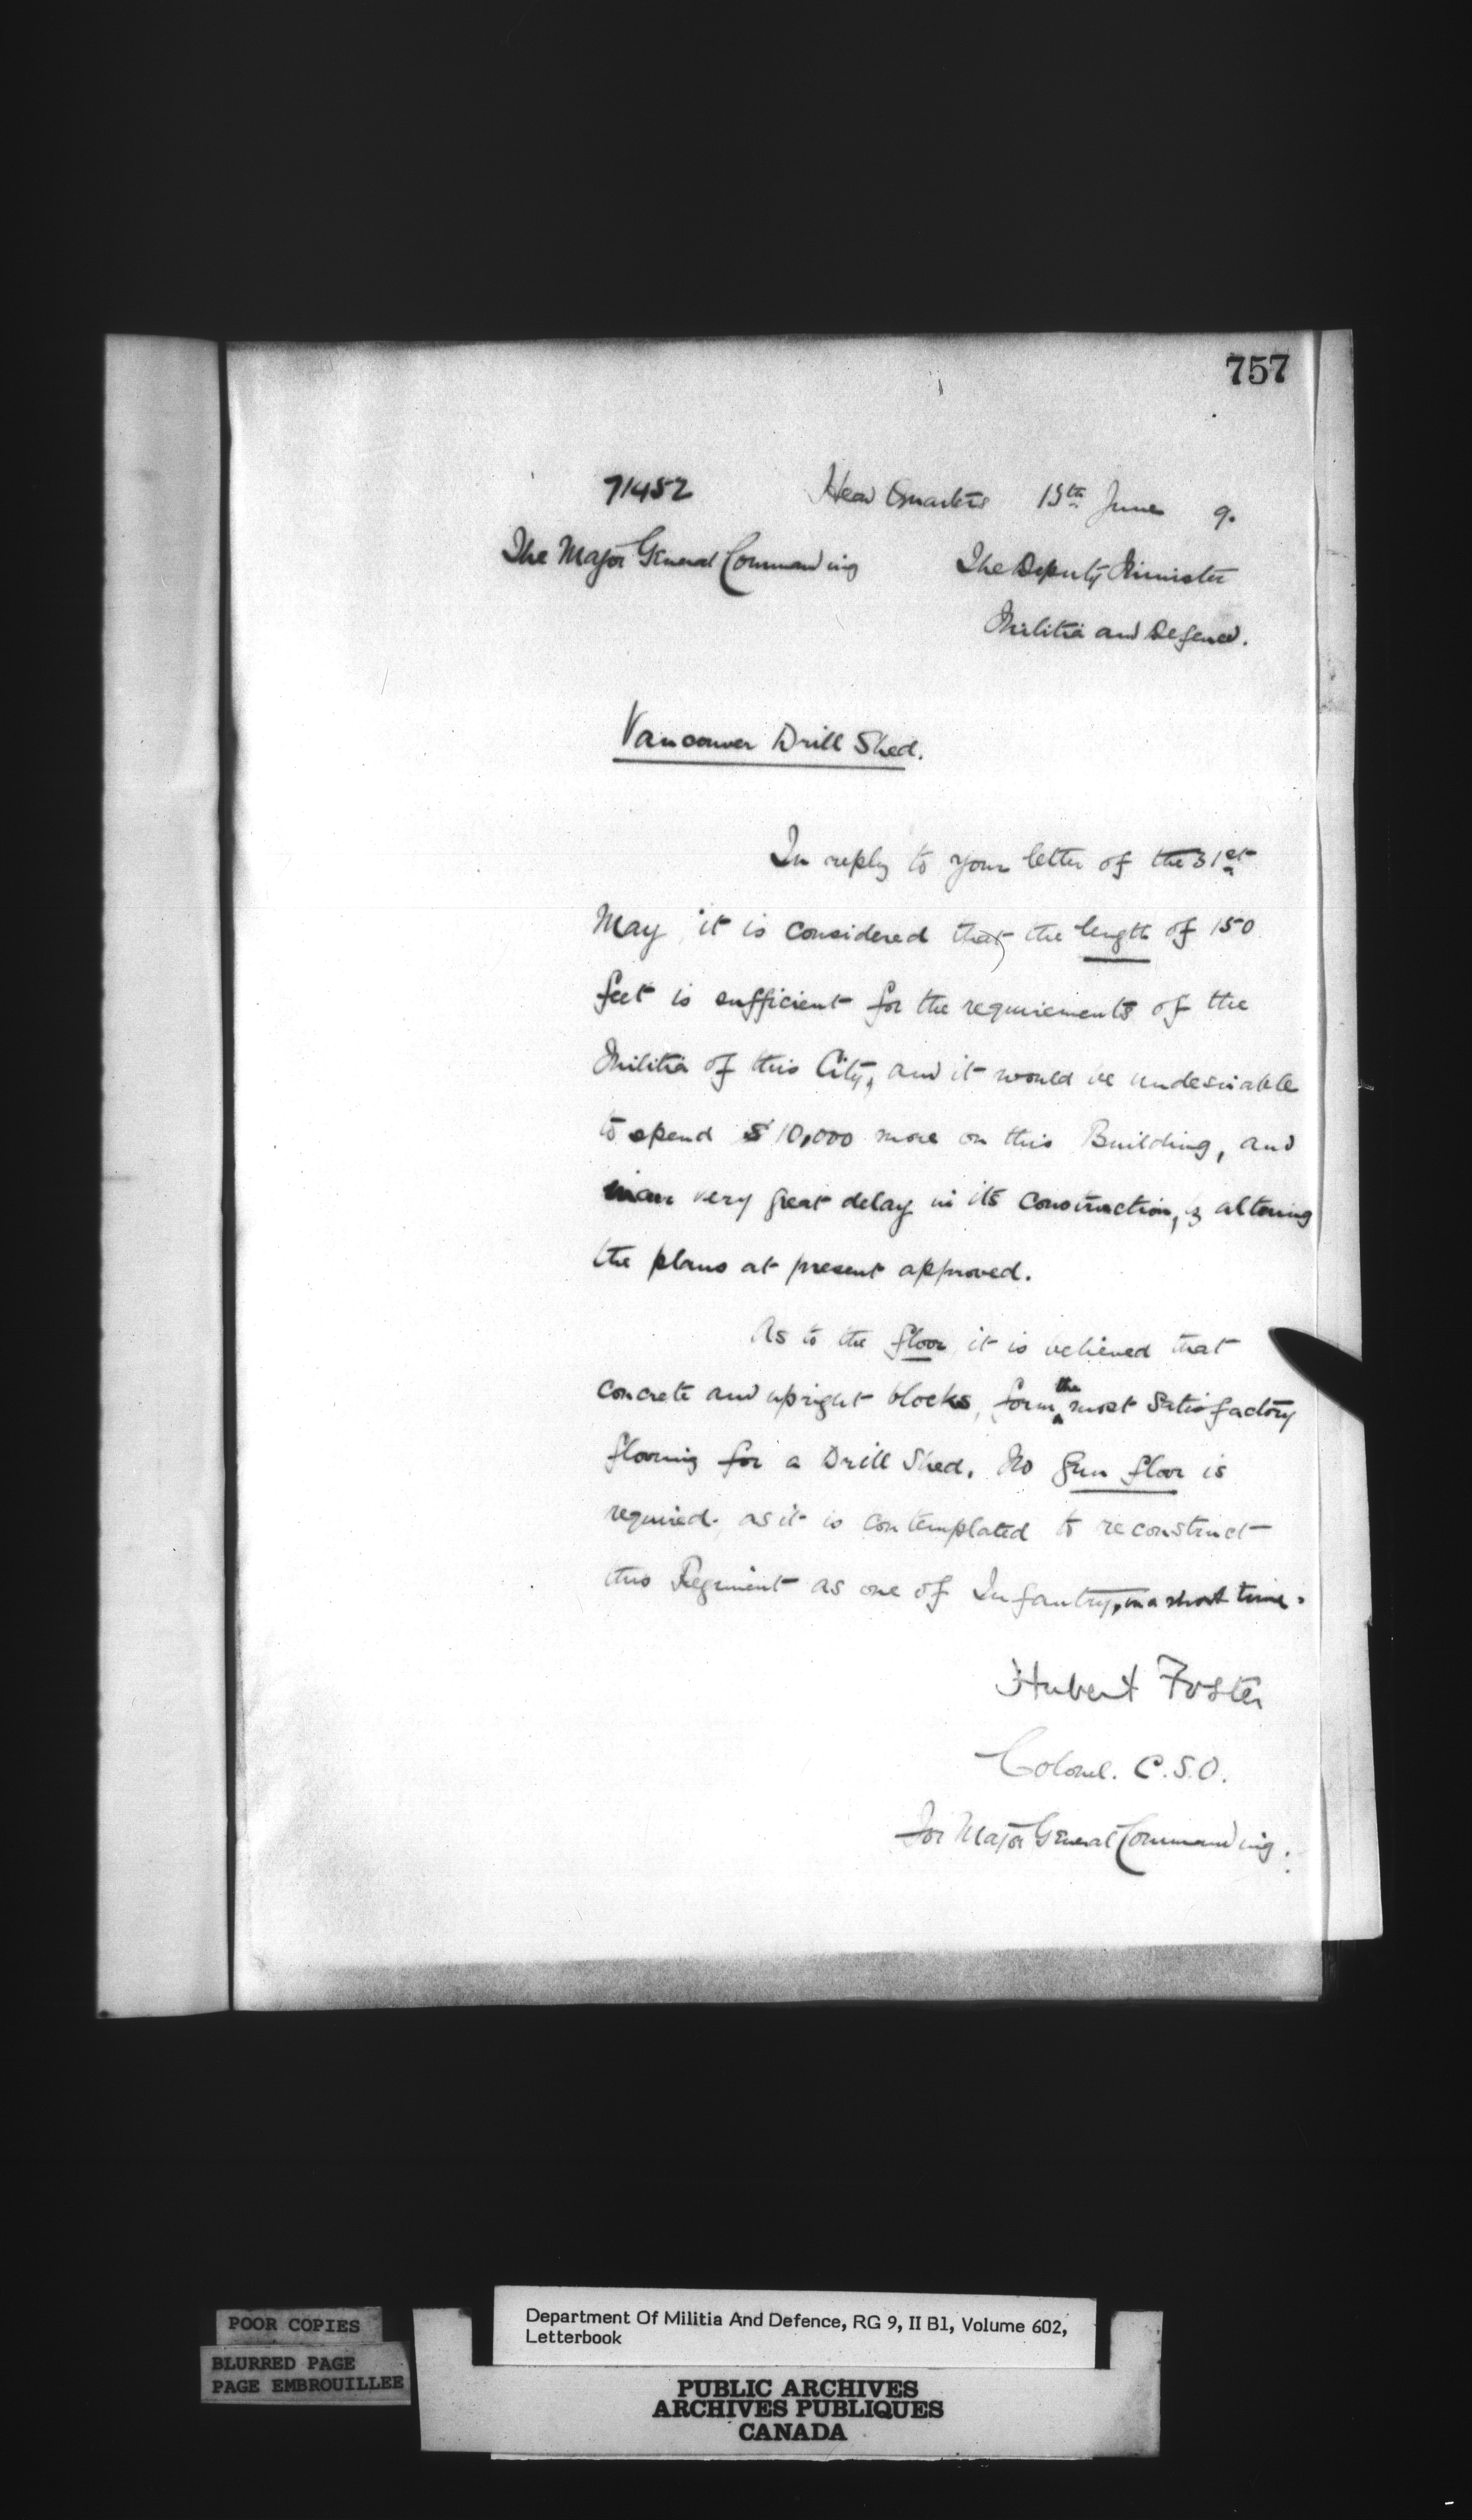 757
71452 Head Quarters 15th June 9.
The Major General Commanding The Deputy Minister
Militia and Defence.
Vancouver Drill Shed.
In reply to your letter of the 31st
May, it is considered that the length of 150
feet is sufficient for the requirements of the
Militia of this City, and it would be undesirable
to spend $10,000 more on this Building, and
incur very great delay in its construction, by altering
the plans at present approved.
As to the floor, it is believed that
concrete and upright blocks, form the most satisfactory
flooring for a Drill Shed. No gun floor is
required, as it is contemplated to reconstruct
this Regiment as one of Infantry, in a short time.
Hubert Foster
Colonel. C.S.O.
For Major General Commanding.
POOR COPIES
BLURRED PAGE
PAGE EMBROUILLEE
Department Of Militia And Defence, RG 9, II B1, Volume 602,
Letterbook
PUBLIC ARCHIVES
ARCHIVES PUBLIQUES
CANADA